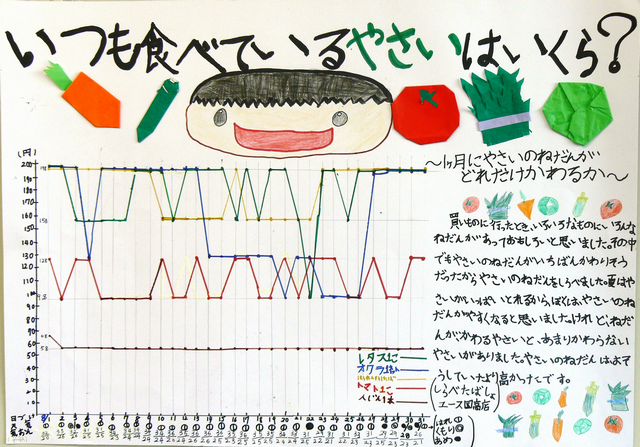 いつも食べているやさいはいくら?
〜1ヶ月にやさいのねだんが
どれだけかわるか〜
買いものに行ったとき、いろいろなものにいろんな
ねだんがあっておもしろいと思いました。その中
でもやさいのねだんがいちばんかわりそう
だったからやさいのねだんをしらべました。夏はや
さいがいっぱいとれるからぼくはやさいのね
だんがやすくなると思いました。けれど、ねだ
んがかわるやさいと、あまりかわらない
やさいがありました。やさいのねだんはよそ
うしていたより高かったです。
(しらべたばしょ
エース国高店)
はれ
くもり
あめ
(円)
200
190
180
170
160
150
140
130
120
110
100
90
80
70
60
50
40
30
20
10
0
198
158
128
98
68
58
レタス1こ
オクラ1ふくろ
トマト1こ
人じん1本
日づけ 8/1 2 3 4 5 6 7 8 9 10 11 12 13 14 15 16 17 18 19 20 21 22 23 24 25 26 27 28 29 30 31